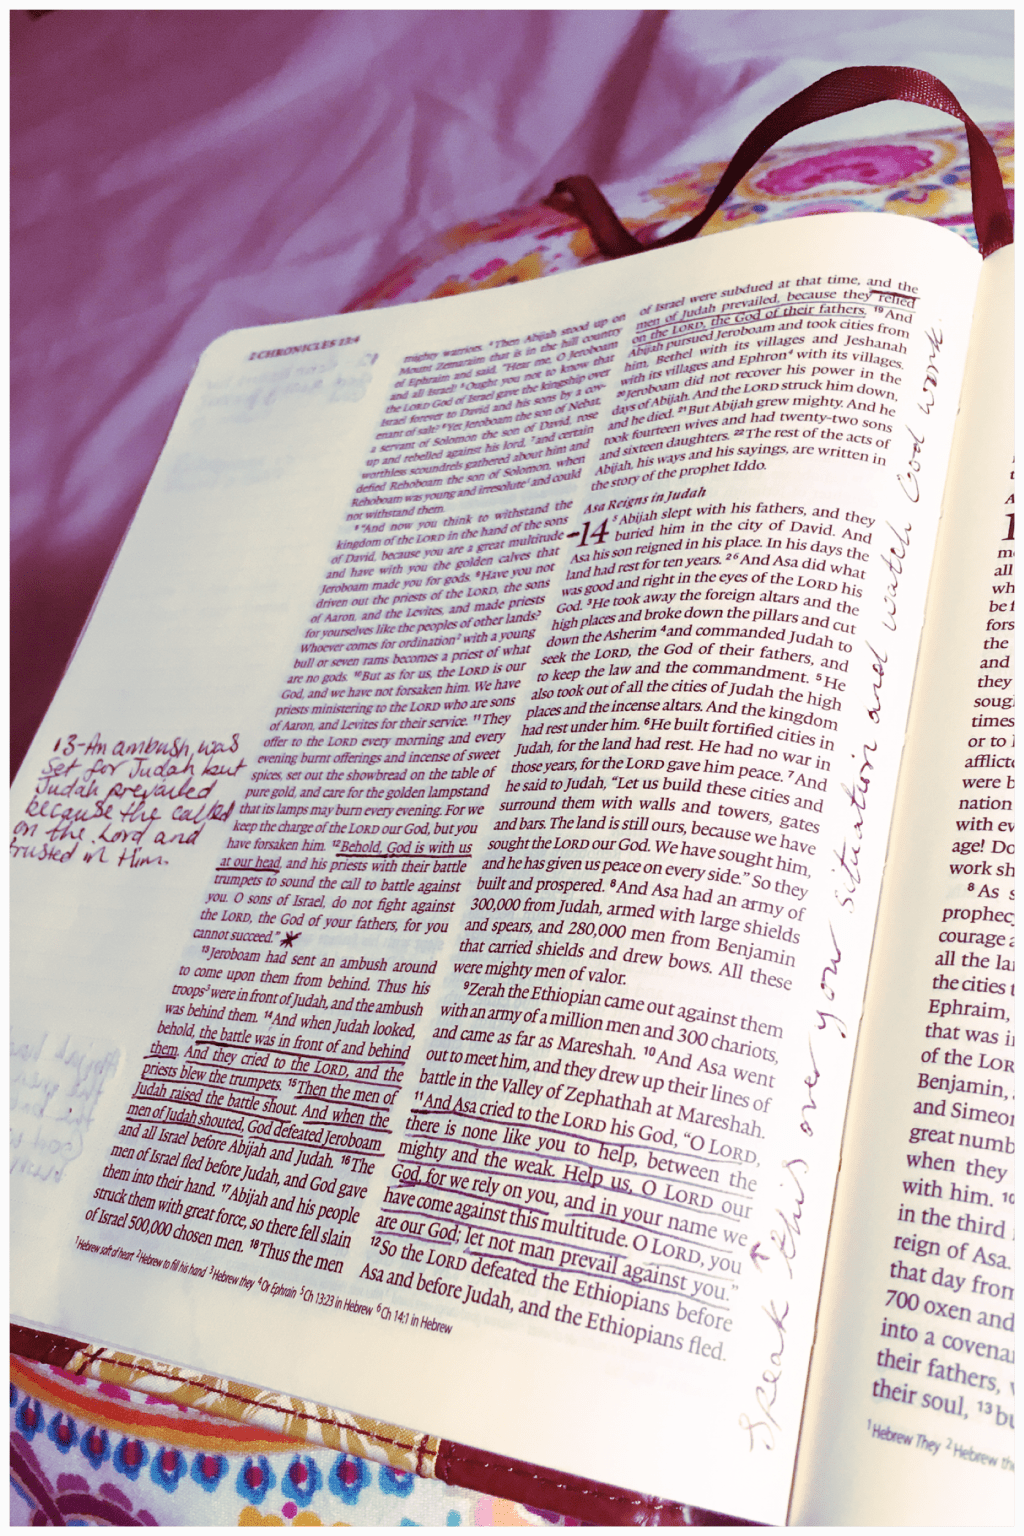 2 CHRONICLES 13:4
mighty warriors. ⁴Then Abijah stood up on
Mount Zemaraim that is in the hill country
of Ephraim and said, "Hear me, O Jeroboam
and all Israel! ⁵Ought you not to know that
the LORD God of Israel gave the kingship over
Israel forever to David and his sons by a cov-
enant of salt? ⁶Yet Jeroboam the son of Nebat,
a servant of Solomon the son of David, rose
up and rebelled against his lord, ⁷and certain
worthless scoundrels gathered about him and
defied Rehoboam the son of Solomon, when
Rehoboam was young and irresolute¹ and could
not withstand them.
⁸"And now you think to withstand the
kingdom of the LORD in the hand of the sons
of David, because you are a great multitude
and have with you the golden calves that
Jeroboam made you for gods. ⁹Have you not
driven out the priests of the LORD, the sons
of Aaron, and the Levites, and made priests
for yourselves like the peoples of other lands?
Whoever comes for ordination² with a young
bull or seven rams becomes a priest of what
are no gods. ¹⁰But as for us, the LORD is our
God, and we have not forsaken him. We have
priests ministering to the LORD who are sons
of Aaron, and Levites for their service. ¹¹They
offer to the LORD every morning and every
evening burnt offerings and incense of sweet
spices, set out the showbread on the table of
pure gold, and care for the golden lampstand
that its lamps may burn every evening. For we
keep the charge of the LORD our God, but you
have forsaken him. ¹²Behold, God is with us
at our head, and his priests with their battle
trumpets to sound the call to battle against
you. O sons of Israel, do not fight against
the LORD, the God of your fathers, for you
cannot succeed."
¹³Jeroboam had sent an ambush around
to come upon them from behind. Thus his
troops³ were in front of Judah, and the ambush
was behind them. ¹⁴And when Judah looked,
behold, the battle was in front of and behind
them. And they cried to the LORD, and the
priests blew the trumpets. ¹⁵Then the men of
Judah raised the battle shout. And when the
men of Judah shouted, God defeated Jeroboam
and all Israel before Abijah and Judah. ¹⁶The
men of Israel fled before Judah, and God gave
them into their hand. ¹⁷Abijah and his people
struck them with great force, so there fell slain
of Israel 500,000 chosen men. ¹⁸Thus the men
¹Hebrew soft of heart ²Hebrew to fill his hand ³Hebrew they ⁴Or Ephrain ⁵Ch 13:23 in Hebrew ⁶Ch 14:1 in Hebrew
13-An ambush was
set for Judah but
Judah prevailed
because the called
on the Lord and
trusted in Him.
of Israel were subdued at that time, and the
men of Judah prevailed, because they relied
on the LORD, the God of their fathers. ¹⁹And
Abijah pursued Jeroboam and took cities from
him, Bethel with its villages and Jeshanah
with its villages and Ephron⁴ with its villages.
²⁰Jeroboam did not recover his power in the
days of Abijah. And the LORD struck him down,
and he died. ²¹But Abijah grew mighty. And he
took fourteen wives and had twenty-two sons
and sixteen daughters. ²²The rest of the acts of
Abijah, his ways and his sayings, are written in
the story of the prophet Iddo.
Asa Reigns in Judah
14 ⁵Abijah slept with his fathers, and they
buried him in the city of David. And
Asa his son reigned in his place. In his days the
land had rest for ten years. ²⁶And Asa did what
was good and right in the eyes of the LORD his
God. ³He took away the foreign altars and the
high places and broke down the pillars and cut
down the Asherim ⁴and commanded Judah to
seek the LORD, the God of their fathers, and
to keep the law and the commandment. ⁵He
also took out of all the cities of Judah the high
places and the incense altars. And the kingdom
had rest under him. ⁶He built fortified cities in
Judah, for the land had rest. He had no war in
those years, for the LORD gave him peace. ⁷And
he said to Judah, "Let us build these cities and
surround them with walls and towers, gates
and bars. The land is still ours, because we have
sought the LORD our God. We have sought him,
and he has given us peace on every side." So they
built and prospered. ⁸And Asa had an army of
300,000 from Judah, armed with large shields
and spears, and 280,000 men from Benjamin
that carried shields and drew bows. All these
were mighty men of valor.
⁹Zerah the Ethiopian came out against them
with an army of a million men and 300 chariots,
and came as far as Mareshah. ¹⁰And Asa went
out to meet him, and they drew up their lines of
battle in the Valley of Zephathah at Mareshah.
¹¹And Asa cried to the LORD his God, "O LORD,
there is none like you to help, between the
mighty and the weak. Help us, O LORD our
God, for we rely on you, and in your name we
have come against this multitude. O LORD, you
are our God; let not man prevail against you."
¹²So the LORD defeated the Ethiopians before
Asa and before Judah, and the Ethiopians fled.
Speak this over your situation and watch God work.
all
wh
be f
fors
the
and
they
soug
times
or to
afflict
were b
nation
with ev
age! Do
work sh
⁸As s
prophec
courage a
all the la
the cities t
Ephraim,
that was i
of the LOR
Benjamin,
and Simeo
great numb
when they
with him. ¹⁰
in the third
reign of Asa.
that day from
700 oxen and
into a covena
their fathers,
their soul, ¹³bu
¹Hebrew They ²Hebrew the